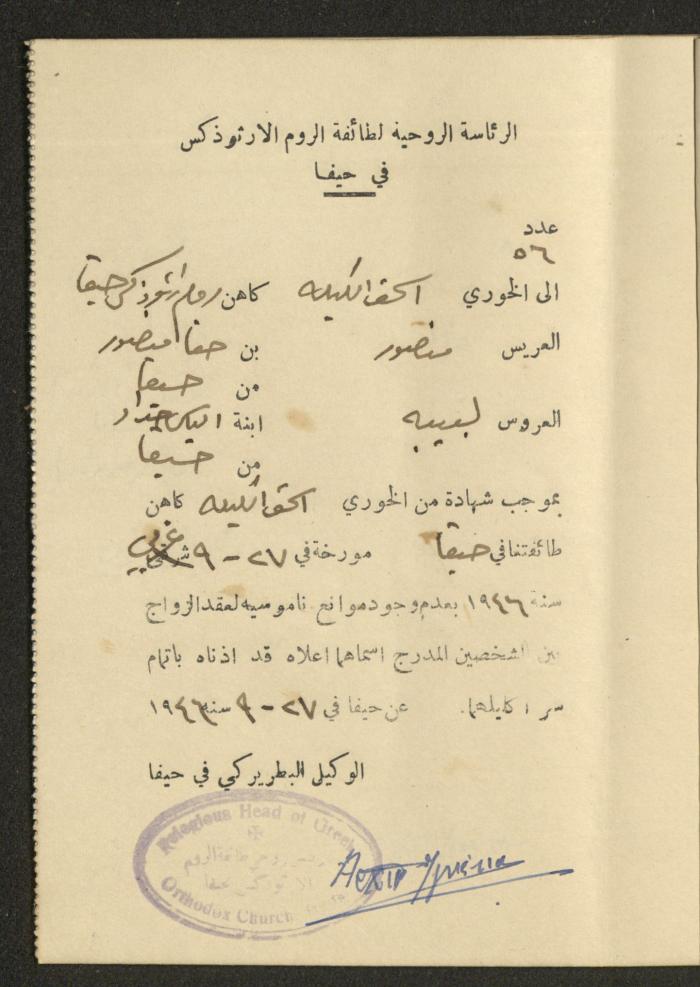 الرئاسة الروحية لطائفة الروم الارثوذكس
في حيفا
عدد
٥٦
الى الخوري اسحق الكيله كاهن روم ارثوذكس حيفا
العريس منصور بن حنا منصور
من حيفا
العروس لبيبه ابنة الياس حداد
من حيفا
بموجب شهادة من الخوري اسحق الكيله كاهن
طائفتنا في حيفا مورخة في ٢٧ – ٩ غربي
سنة ١٩٤٦ بعدم وجود موانع ناموسيه لعقد الزواج
بين الشخصين المدرج اسماهما اعلاه قد اذناه باتمام
سر اكليلهما. عن حيفا في ٢٧ – ٩ سنة ١٩٤٦
الوكيل البطريركي في حيفا
Relegious Head of Greek
الروم
Orthodox Church